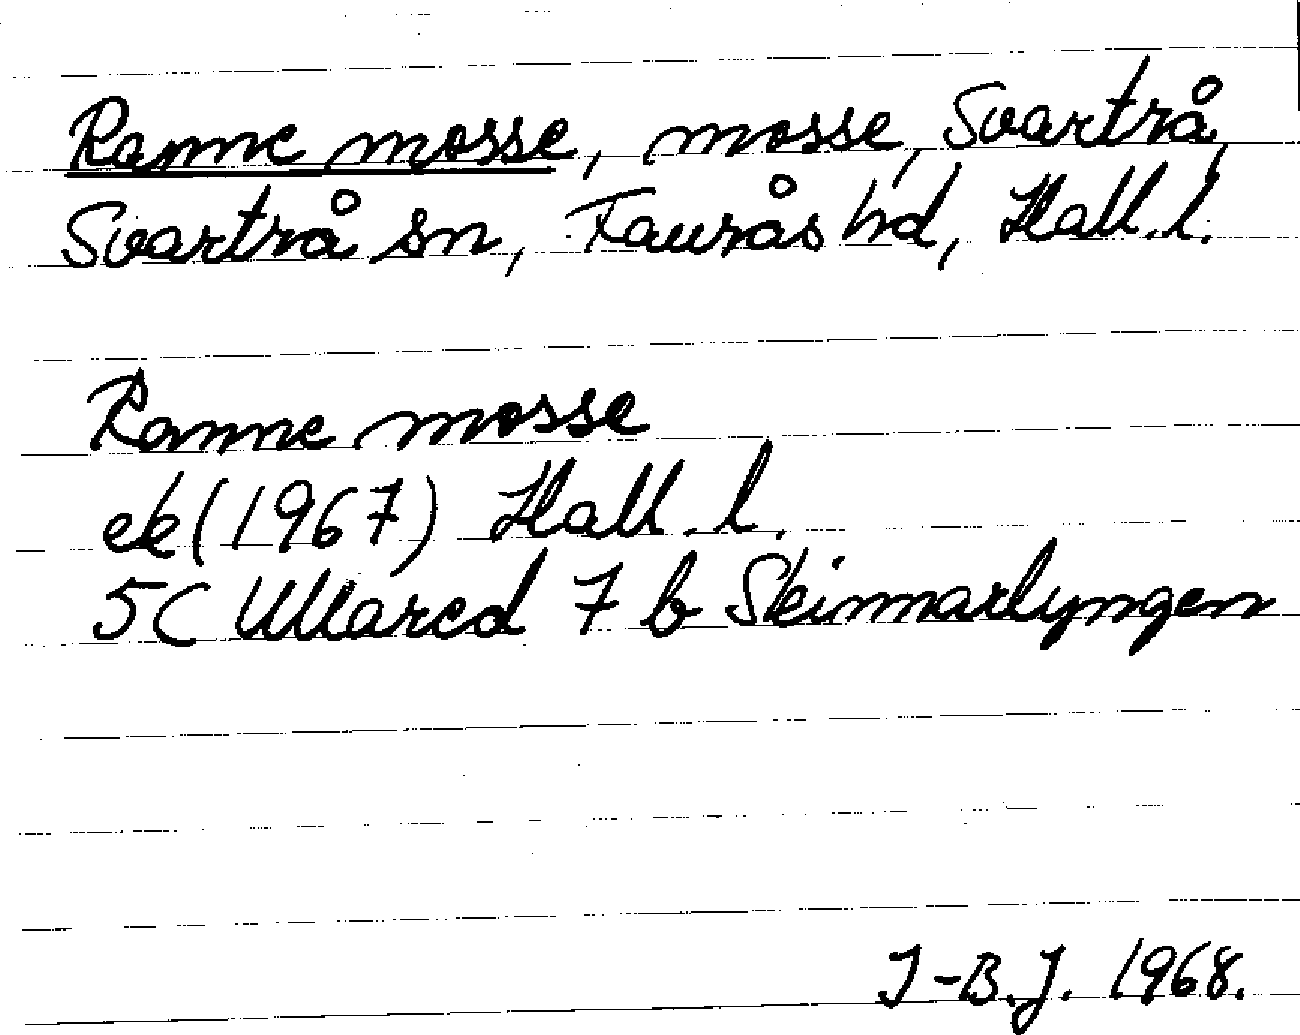 Ranne mosse, mosse, Svartrå,
Svartrå sn, Faurås hd, Hall. l.
Ranne mosse
ek (1967) Hall. l.
5C Ullared 7 b Skinnarlyngen
J-B.J. 1968.